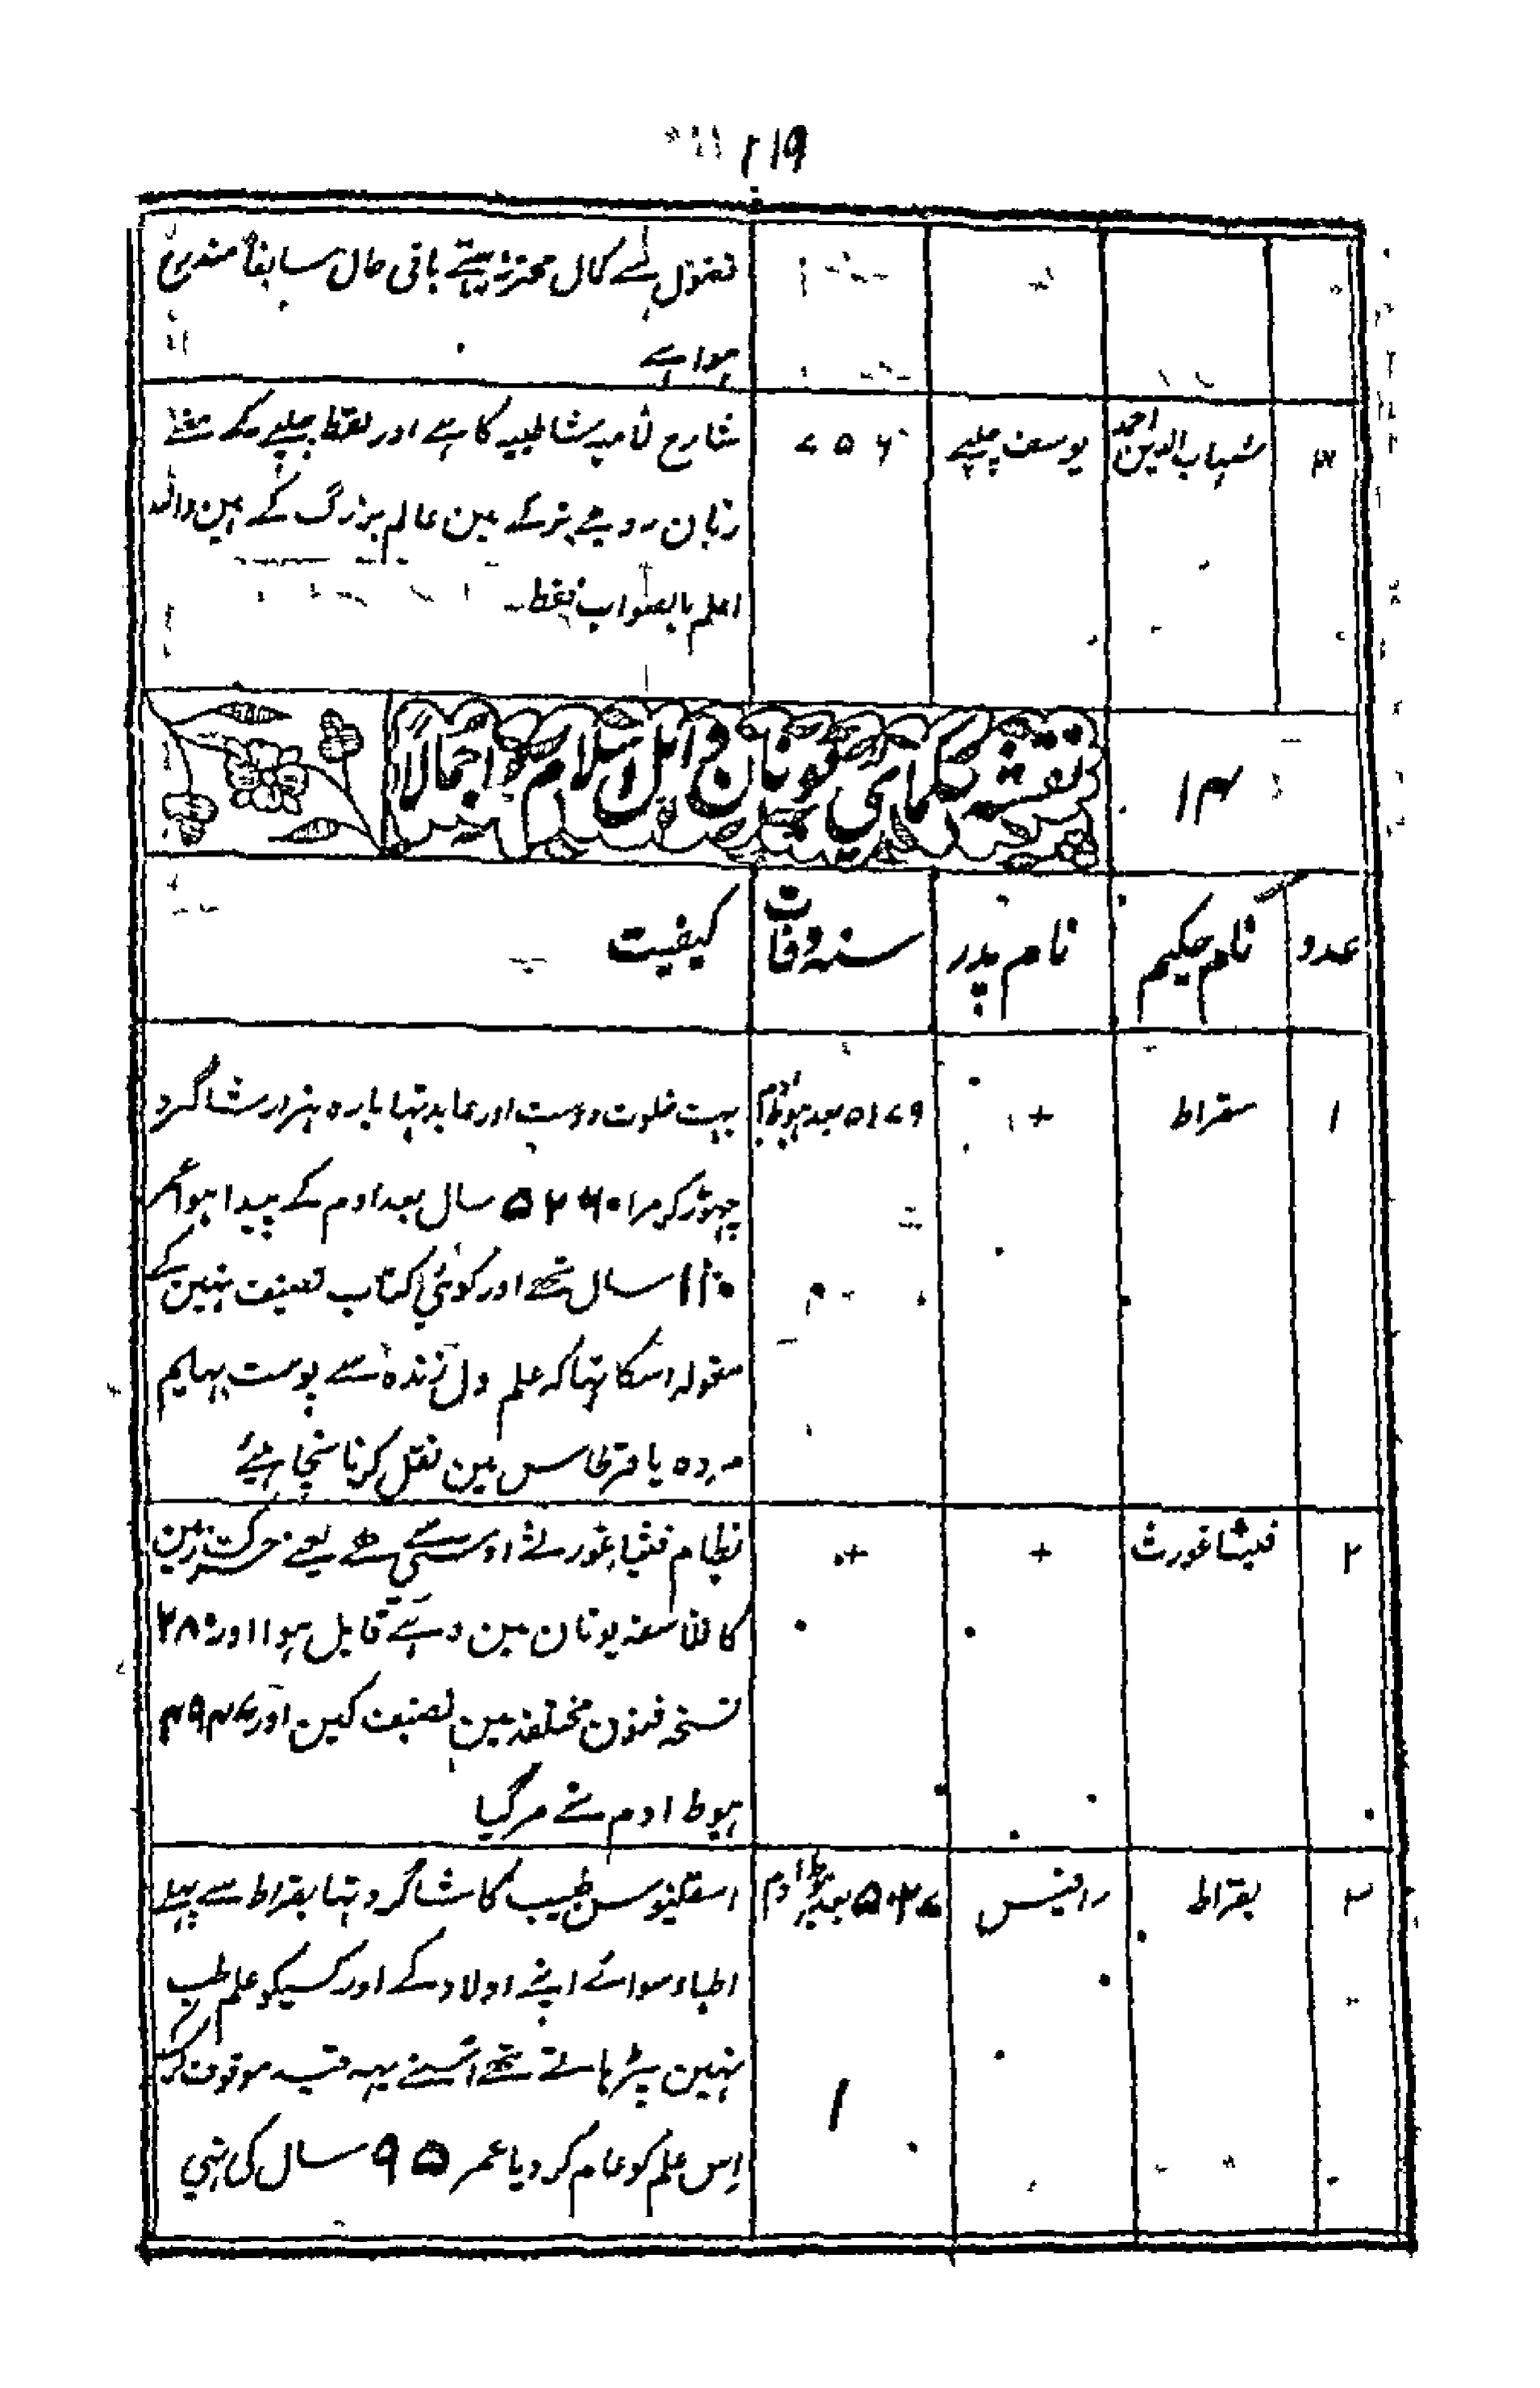 ۲۱۹
فضول سے کمال محترز تہے باقی حال سابقاً مندرج
ہوا ہے
۳ شہاب الدین احمد یوسف چلپے ۷۵۶ شارح لامیہ شاطبیہ کا ہے اور لفظ چلپے کے معنے
زبان رومے و ترکے مین عالم بزرگ کے ہین واللہ
اعلم بالصواب فقط
۱۴ نقشہ حکمای یونان و اہل اسلام اجمالاً
عدد نام حکیم نام پدر سنہ وفات کیفیت
۱ سقراط + ۵۱۷۹ بعد ہبوط آدم بہت خلوت دوست اور عابد تہا بارہ ہزار شاگرد
چہوڑ کر مرا ۵۲۶۰ سال بعد ادم کے پیدا ہوا عمر
۱۱۰ سال تھے اور کوئی کتاب تصنیف نہین کے
مقولہ اسکا تہا کہ علم دل زندہ سے پوست بہایم
مردہ یا قرطاس مین نقل کرنا نچاہئے
۲ فیثاغورث + + نظام فیثاغورثے اوسی سے ہے یعنے حرکت زمین
کا فلاسفہ یونان مین وہے قایل ہوا اور ۲۸۰
نسخہ فنون مختلفہ مین تصنیف کین اور ۴۹۴۷
ہبوط ادم مے مر گیا
۳ بقراط رافیس ۵۰۲۷ بعد ہبوط ادم اسقلینوس طبیب کا شاگرد تہا بقراط سے پہلے
اطباء سوائے اپنے اولاد کے اور کسیکو علم طب
نہین پڑہاتے تھے اسنے یہہ قید موقوف کر
اِس علم کو عام کر دیا عمر ۹۵ سال کی تہی